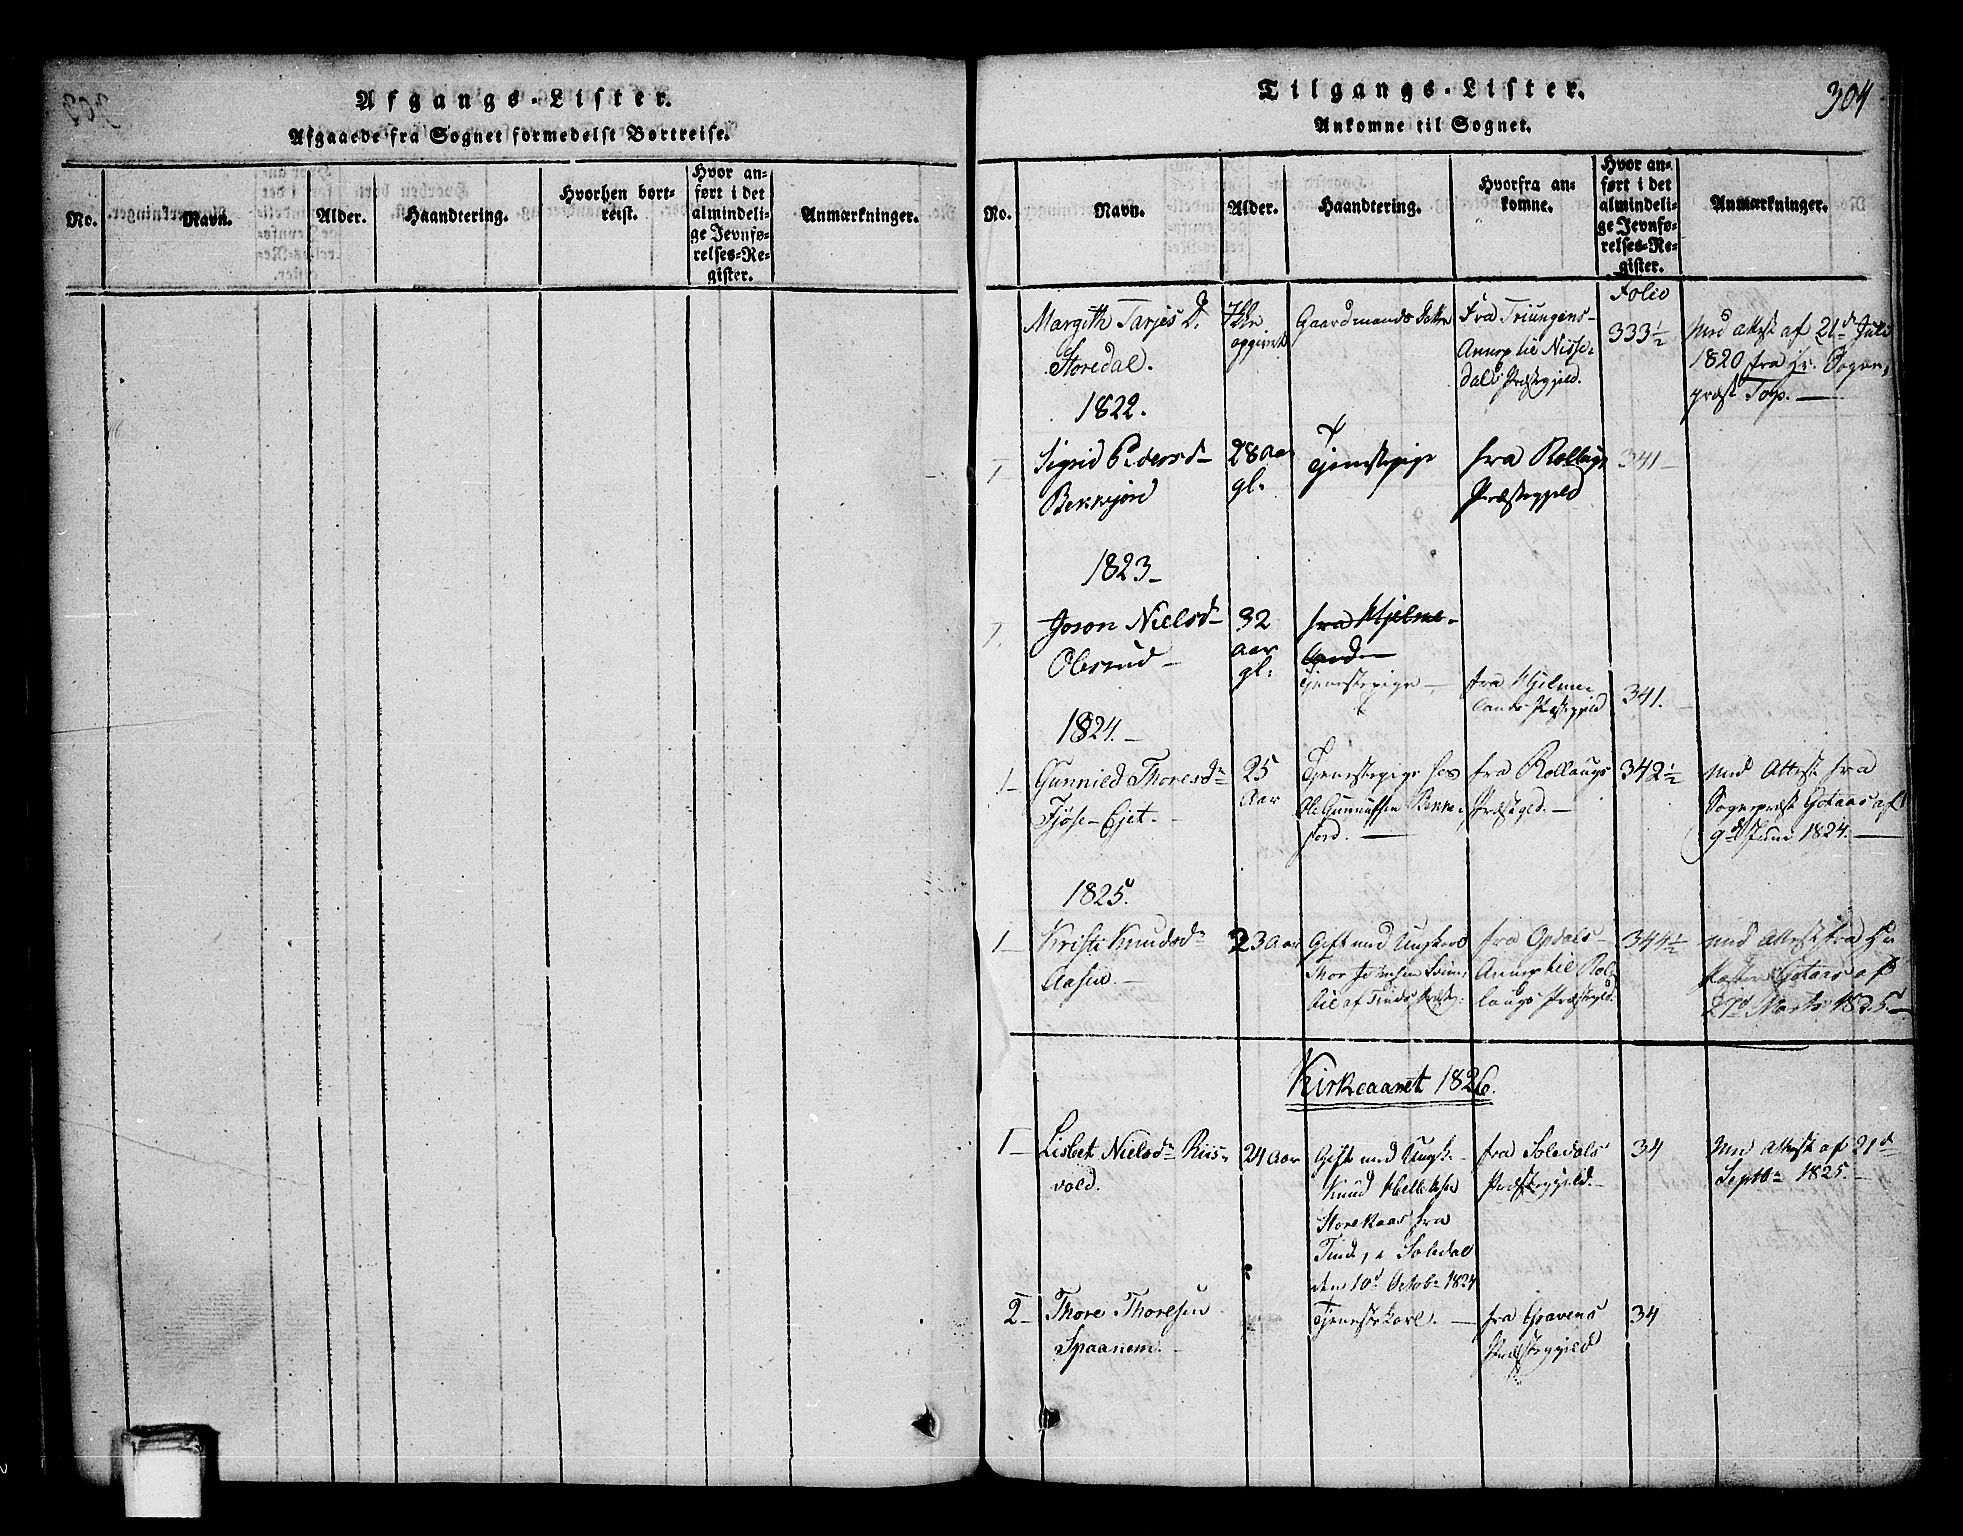 Afgangs-Lister.
Afgaaede fra Sognet formedelst Bortreise.
No.
Navn.
Alder.
Haandtering.
Hvorhen bort-
reist.
Hvor an-
ført i det
almindeli-
ge Jevnfø-
relses-Re-
gister.
Anmærkninger.
304
Tilgangs-Lister.
Ankomne til Sognet.
No.
Navn.
Alder.
Haandtering.
Hvorfra an-
komne.
Hvor an-
ført i det
almindeli-
ge Jevnfø-
relses-Re-
gister.
Anmærkninger.
Folio
Margith Tarjes D.
Storedal.
opgivet
Gaardmands
Fra Triungens-
Annex til Nisse-
dals Præstegjeld.
333½
Med Attest af 21d Juli
1820 fra Hr. Sogne-
præst
1822.
1
Sigrid Pedersd
Bekkejord
28 Aar
gl.
Tjenestepige
fra Rollags
Præstegjeld
341
1823
1.
Joron Nielsd
Olsrud
32
aar
gl.
fra Hjelme-
land
Tjenestepige
fra Hjelme-
lands Præstegjeld
341.
1824.
1
Gunnild Thoresd
Fjøse-Ejet.
25
Aar
Tjenestepige hos
Ole Gunnulfsen Bekke-
jord.
fra Rollaugs
Præstgeld.
342½
med Attest fra
Sognepræst Gotaas af
9d Juni 1824.
1825.
1
Kristi Knudsd
Aasen.
23 Aar
Gift med Ungkarl
Thor
af Tinds Præsteg:
fra Opdals
Annex til Rol-
laugs Præstegjeld.
344½
med Attest fra Hr
Pastor Gotaas af
Marts 1825.
Kirkeaaret 1826.
1
Lisbet Nielsd Riis-
vold.
24 Aar
Gift med Ungk.
Knud Helleksen
Storekaas fra
Tind, i Soledal
den 10d Octob 1824
fra Soledals
Præstegjeld.
34
Med Attest af 21d
Septb 1825.
2
Thore Thoresen
Spaanem.
Tjenestekarl.
fra Gravens
Præstegjeld
34